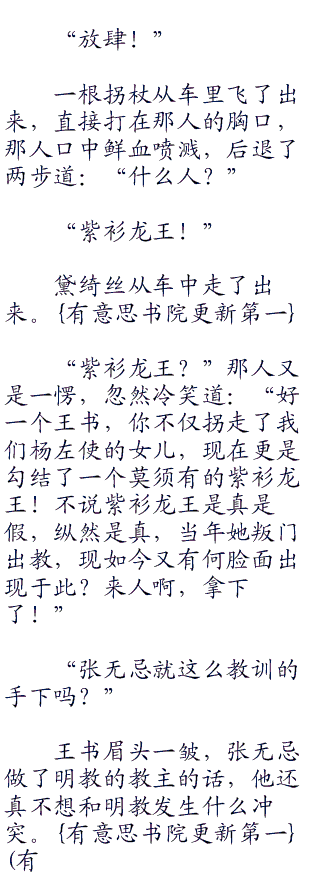 “放肆！”
一根拐杖从车里飞了出
来，直接打在那人的胸口，
那人口中鲜血喷溅，后退了
两步道：“什么人？”
“紫衫龙王！”
黛绮丝从车中走了出
来。{有意思书院更新第一}
“紫衫龙王？”那人又
是一愣，忽然冷笑道：“好
一个王书，你不仅拐走了我
们杨左使的女儿，现在更是
勾结了一个莫须有的紫衫龙
王！不说紫衫龙王是真是
假，纵然是真，当年她叛门
出教，现如今又有何脸面出
现于此？来人啊，拿下
了！”
“张无忌就这么教训的
手下吗？”
王书眉头一皱，张无忌
做了明教的教主的话，他还
真不想和明教发生什么冲
突。{有意思书院更新第一}
(有